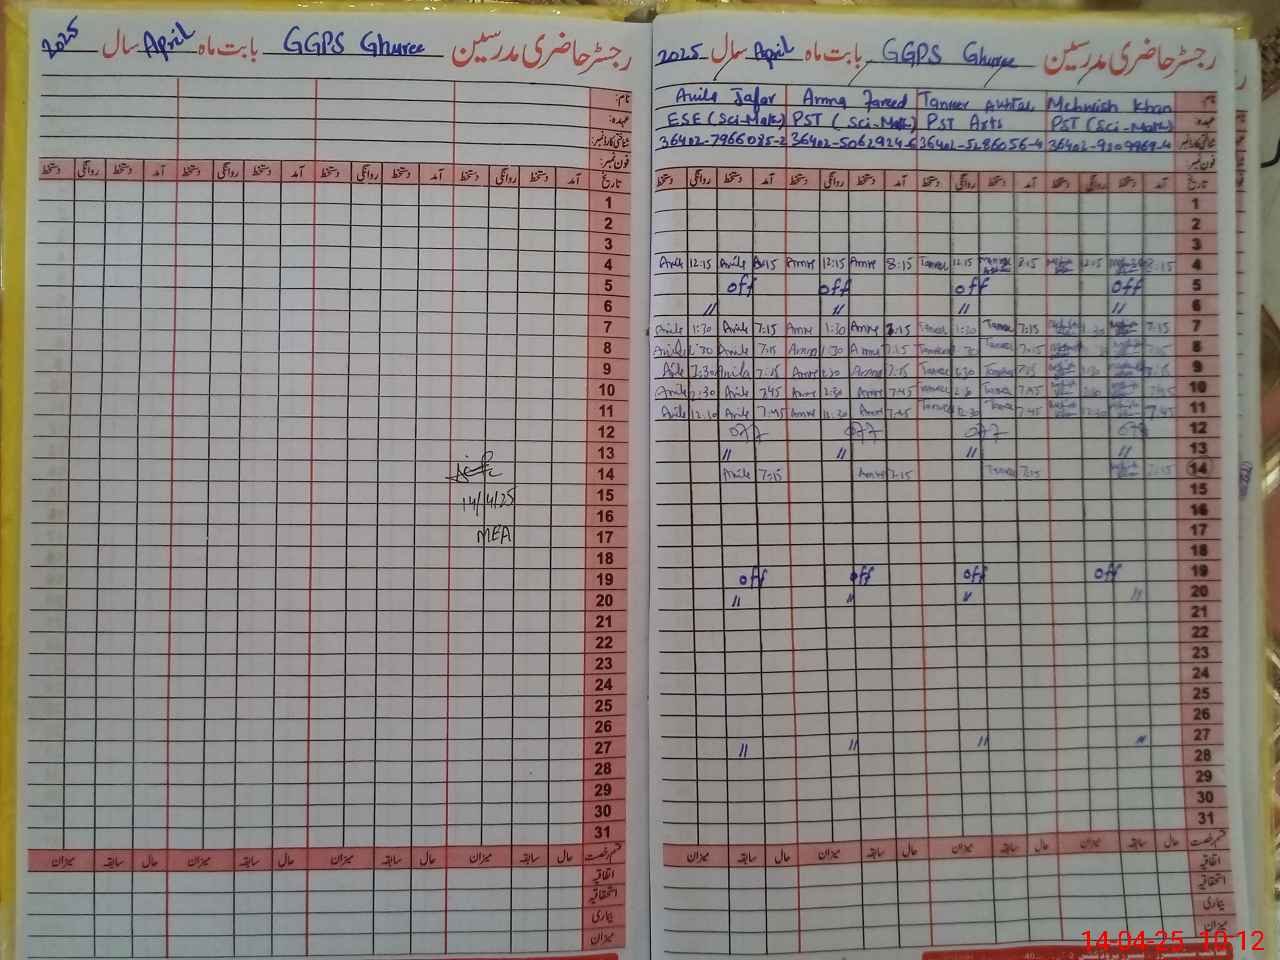 رجسٹر حاضری مدرسین GGPS Ghuree بابت ماہ April سال 2025
نام:
عہدہ:
شناختی کارڈ نمبر:
فون نمبر:
تاریخ آمد دستخط روانگی دستخط آمد دستخط روانگی دستخط آمد دستخط روانگی دستخط آمد دستخط روانگی دستخط
1
2
3
4
5
6
7
8
9
10
11
12
13
14
15
14/4/25
16
17
MEA
18
19
20
21
22
23
24
25
26
27
28
29
30
31
قسم رخصت حال سابقہ میزان حال سابقہ میزان حال سابقہ میزان حال سابقہ میزان
اتفاقیہ
استحقاقیہ
بیماری
میزان
رجسٹر حاضری مدرسین GGPS Ghuree بابت ماہ April سال 2025
نام: Anila Jafar Amna Fareed Tanveer Akhtar Mehwish Khan
عہدہ: ESE (Sci-Math) PST (Sci-Math) PST Arts PST (Sci-Math)
شناختی کارڈ نمبر: 36402-7966085-2 36402-5062924-6 36402-5286056-4
فون نمبر:
تاریخ آمد دستخط روانگی دستخط آمد دستخط روانگی دستخط آمد دستخط روانگی دستخط آمد دستخط روانگی دستخط
1
2
3
Anila 12:15 Anila 8:15 Amna 12:15 Amna 8:15 Tanveer 12:15 8:15 12:15 8:15 4
off off off off 5
〃 〃 〃 〃 6
Anila 1:30 Anila 7:15 Amna 1:30 Amna 7:15 Tanveer 1:30 Tanveer 7:15 1:30 7:15 7
Anila 1:30 Anila 7:15 Amna 1:30 Amna 7:15 Tanveer 1:30 Tanveer 7:15 7:15 8
Anila 1:30 Anila 7:15 Amna 1:30 Amna 7:15 Tanveer 1:30 Tanveer 7:15 1:30 7:15 9
Anila 12:30 Anila 7:45 Amna 12:30 Amna 7:45 Tanveer 12:30 Tanveer 7:45 12:30 7:45 10
Anila 12:30 Anila 7:45 Amna 12:30 Amna 7:45 Tanveer 12:30 Tanveer 7:45 12:30 7:45 11
off off off off 12
〃 〃 〃 〃 13
Anila 7:15 Amna 7:15 Tanveer 7:15 7:15 14
15
16
17
18
off off off off 19
〃 〃 〃 〃 20
21
22
23
24
25
26
〃 〃 〃 〃 27
28
29
30
31
قسم رخصت حال سابقہ میزان حال سابقہ میزان حال سابقہ میزان حال سابقہ میزان
اتفاقیہ
استحقاقیہ
بیماری
میزان
14-04-25 10:12